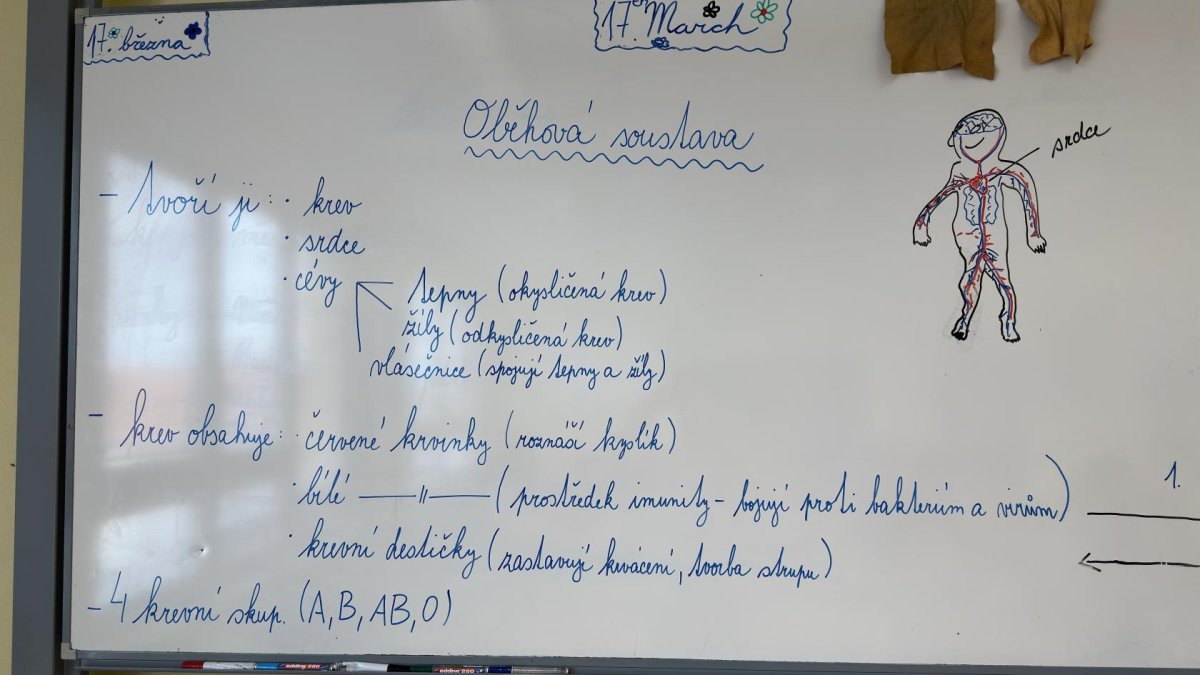 17. března
17. March
Oběhová soustava
srdce
- tvoří ji: · krev
· srdce
· cévy
tepny (okysličená krev)
žíly (odkysličená krev)
vlásečnice (spojují tepny a žíly)
- krev obsahuje: · červené krvinky (roznáší kyslík)
· bílé —— 〃 —— (prostředek imunity - bojují proti bakteriím a virům)
1.
· krevní destičky (zastavují krvácení, tvorba strupu)
- 4 krevní skup. (A, B, AB, O)
edding 250
edding 250